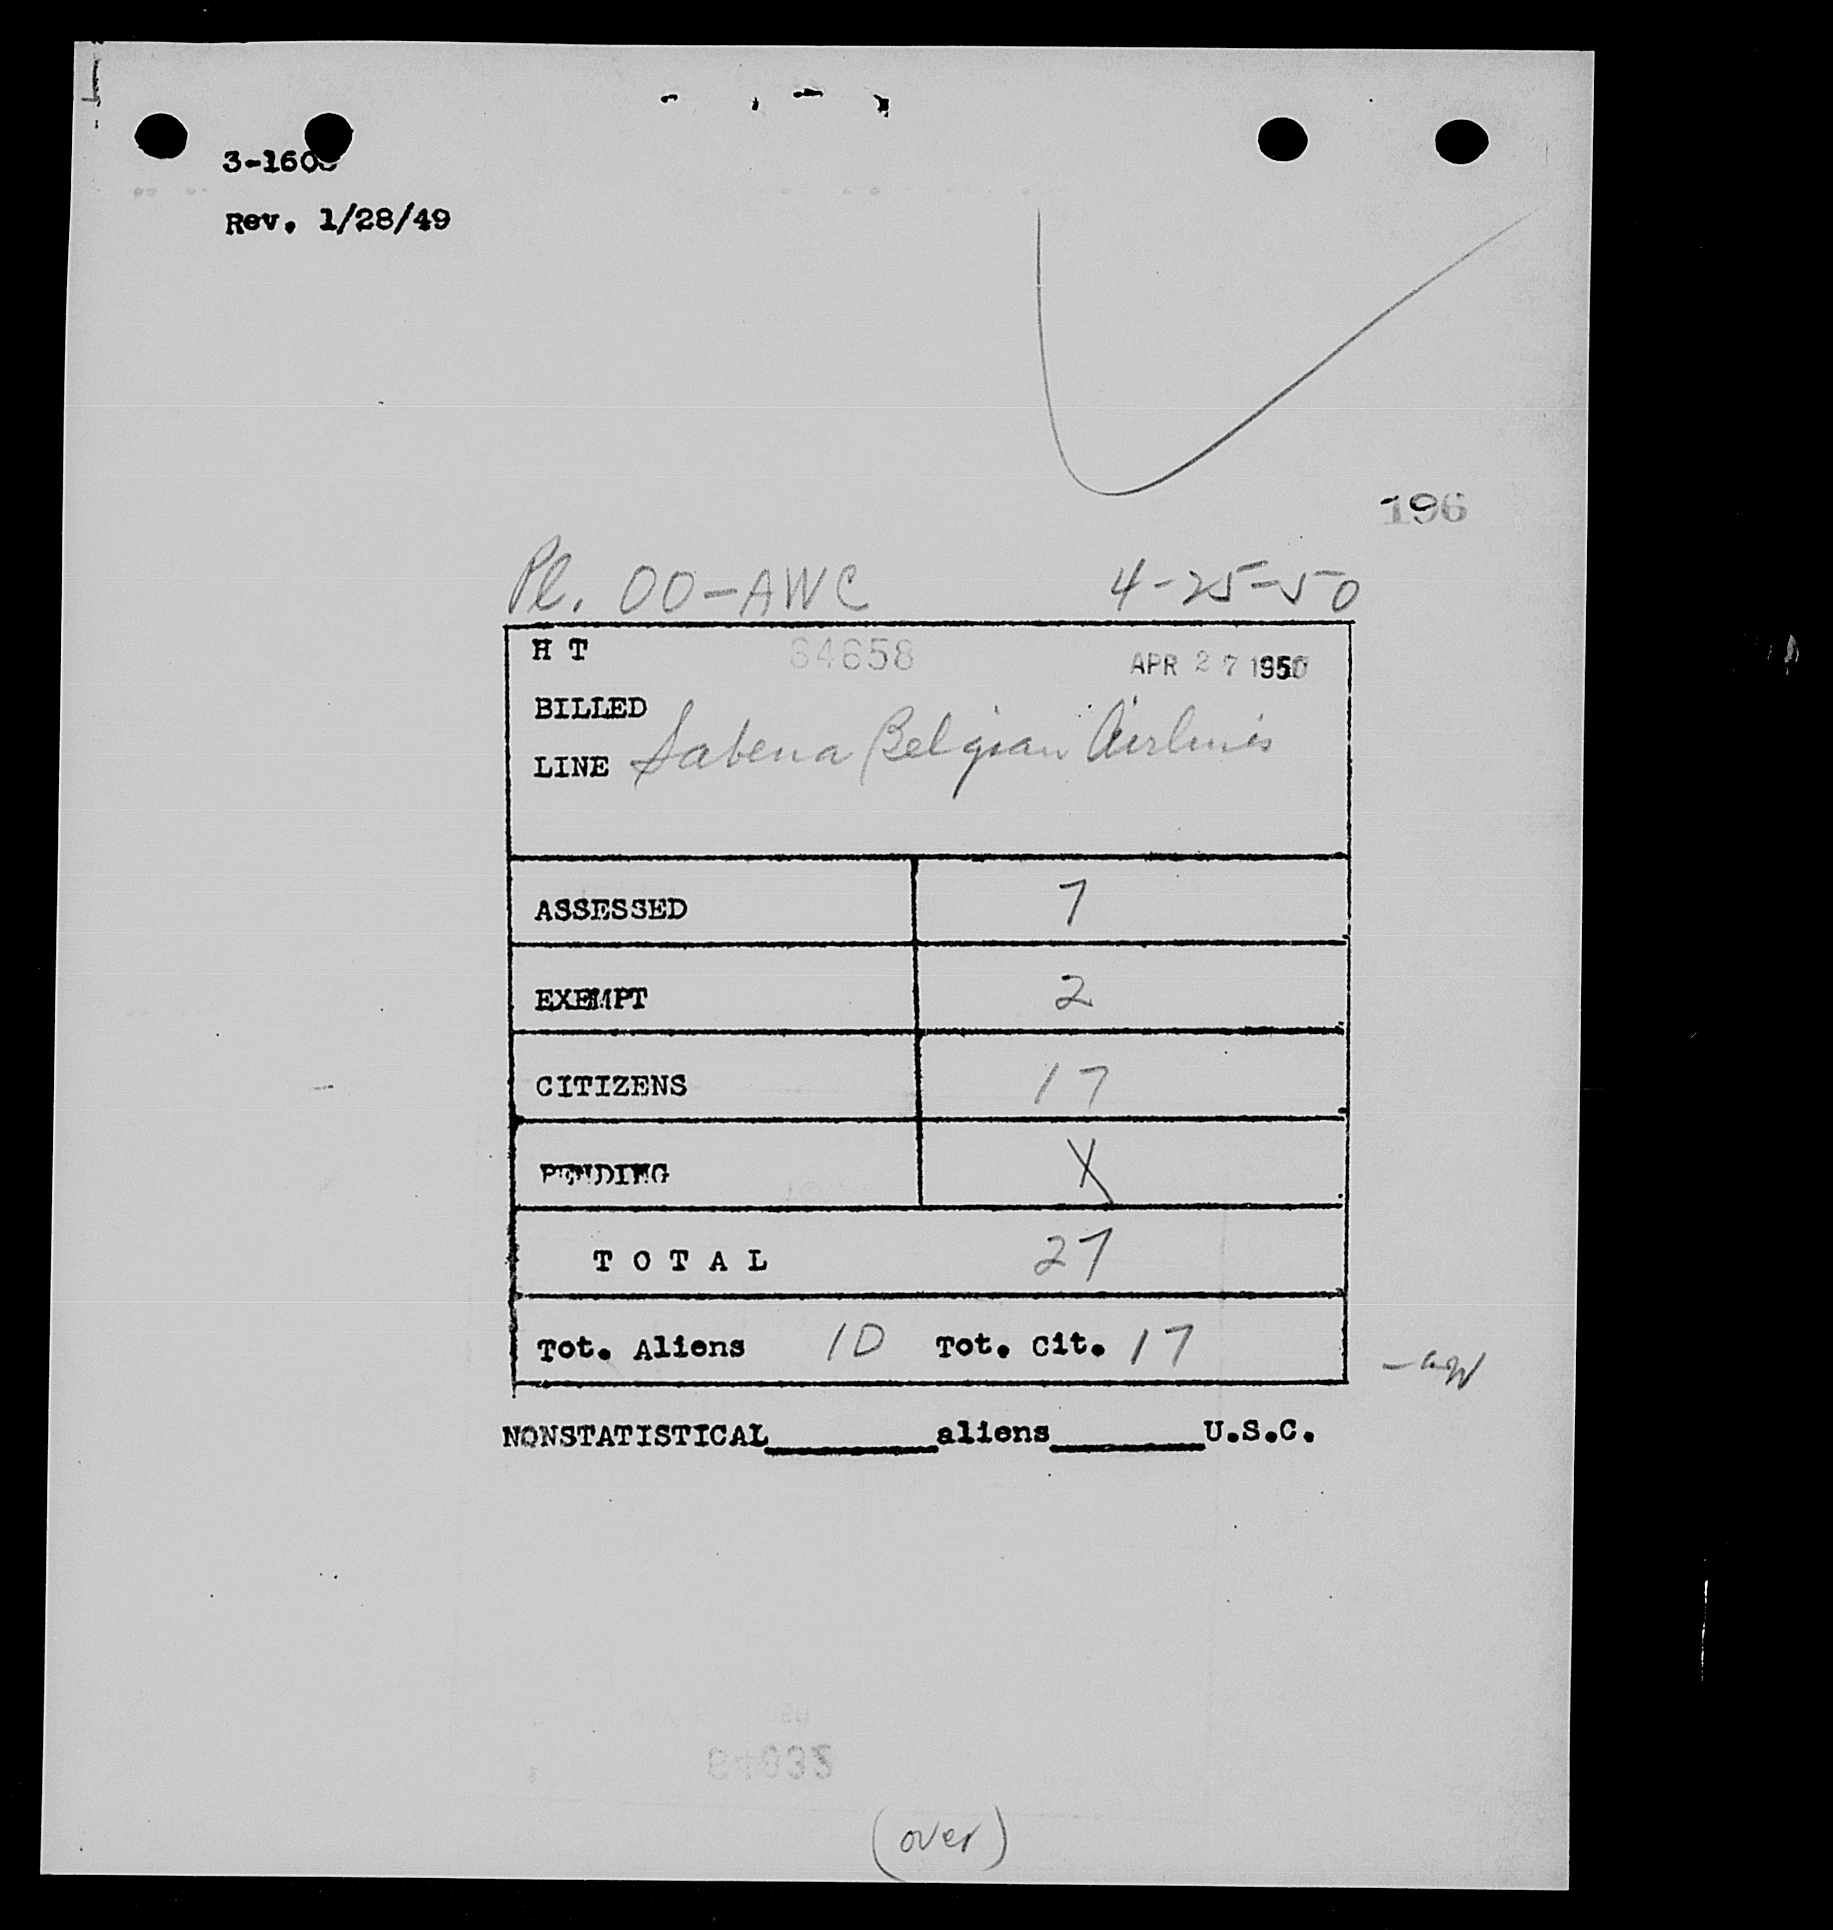 Rev. 1/28/49
196
Pl. OO-AWC 4-25-50
H T 64658 APR 27 1950
BILLED
LINE Sabena Belgian Airlines
ASSESSED 7
EXEMPT 2
CITIZENS 17
PENDING X
TOTAL 27
Tot. Aliens 10 Tot. Cit. 17
NONSTATISTICAL________aliens________U.S.C.
(over)